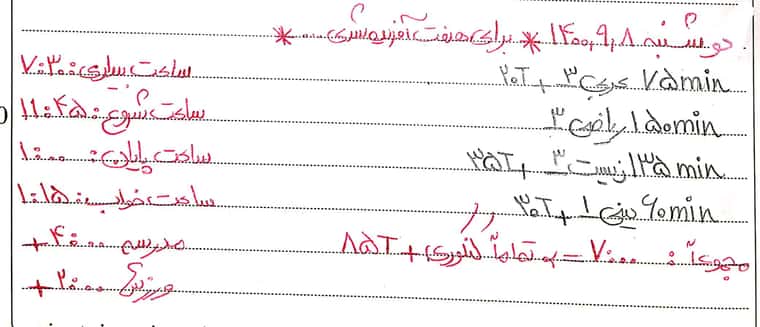 دوشنبه ۱۴۰۰,۹,۸ * برای هفت آفرینمسری... *
۷۵min عربی ۳ + ۲۰T ساعت بیداری: ۷:۳۰
۱۵۰min ریاضی ۳ ساعت شروع: ۱۱:۴۵
۱۳۵min زیست ۳ + ۳۵T ساعت پایان: ۱:۰۰
۶۰min دینی ۱ + ۳۰T ساعت خواب: ۱:۱۵
مجموعاً: ۷:۰۰ - تماماً تئوری + ۸۵T مدرسه ۴:۰۰ +
ورزش ۲:۰۰ +